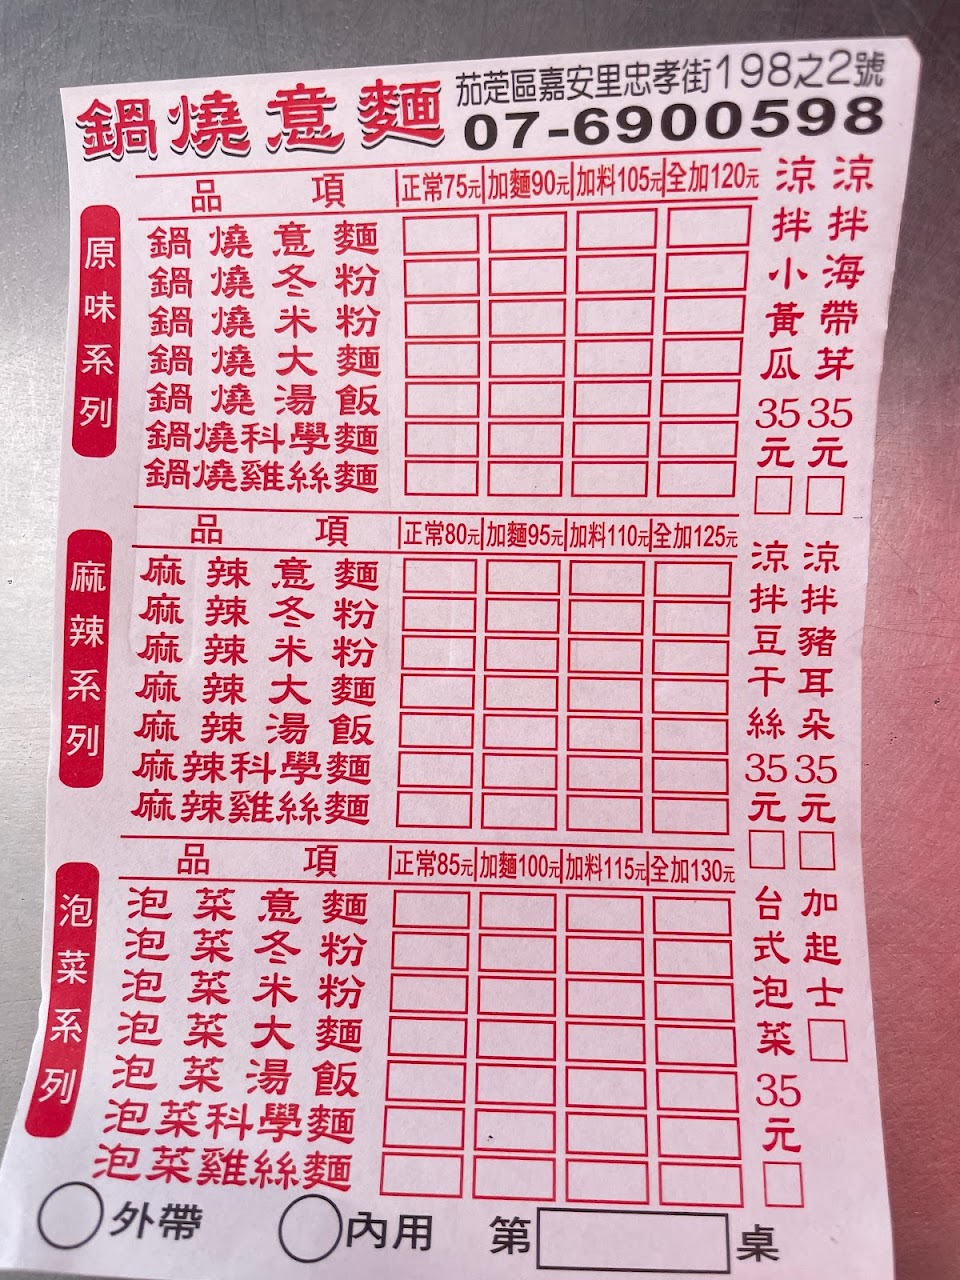 鍋燒意麵
茄萣區嘉安里忠孝街198之2號
07-6900598
原味系列
品項 正常75元 加麵90元 加料105元 全加120元
鍋燒意麵
鍋燒冬粉
鍋燒米粉
鍋燒大麵
鍋燒湯飯
鍋燒科學麵
鍋燒雞絲麵
麻辣系列
品項 正常80元 加麵95元 加料110元 全加125元
麻辣意麵
麻辣冬粉
麻辣米粉
麻辣大麵
麻辣湯飯
麻辣科學麵
麻辣雞絲麵
泡菜系列
品項 正常85元 加麵100元 加料115元 全加130元
泡菜意麵
泡菜冬粉
泡菜米粉
泡菜大麵
泡菜湯飯
泡菜科學麵
泡菜雞絲麵
涼拌海帶芽35元
涼拌小黃瓜35元
涼拌豬耳朵35元
涼拌豆干絲35元
加起士
台式泡菜35元
外帶 內用 第 桌